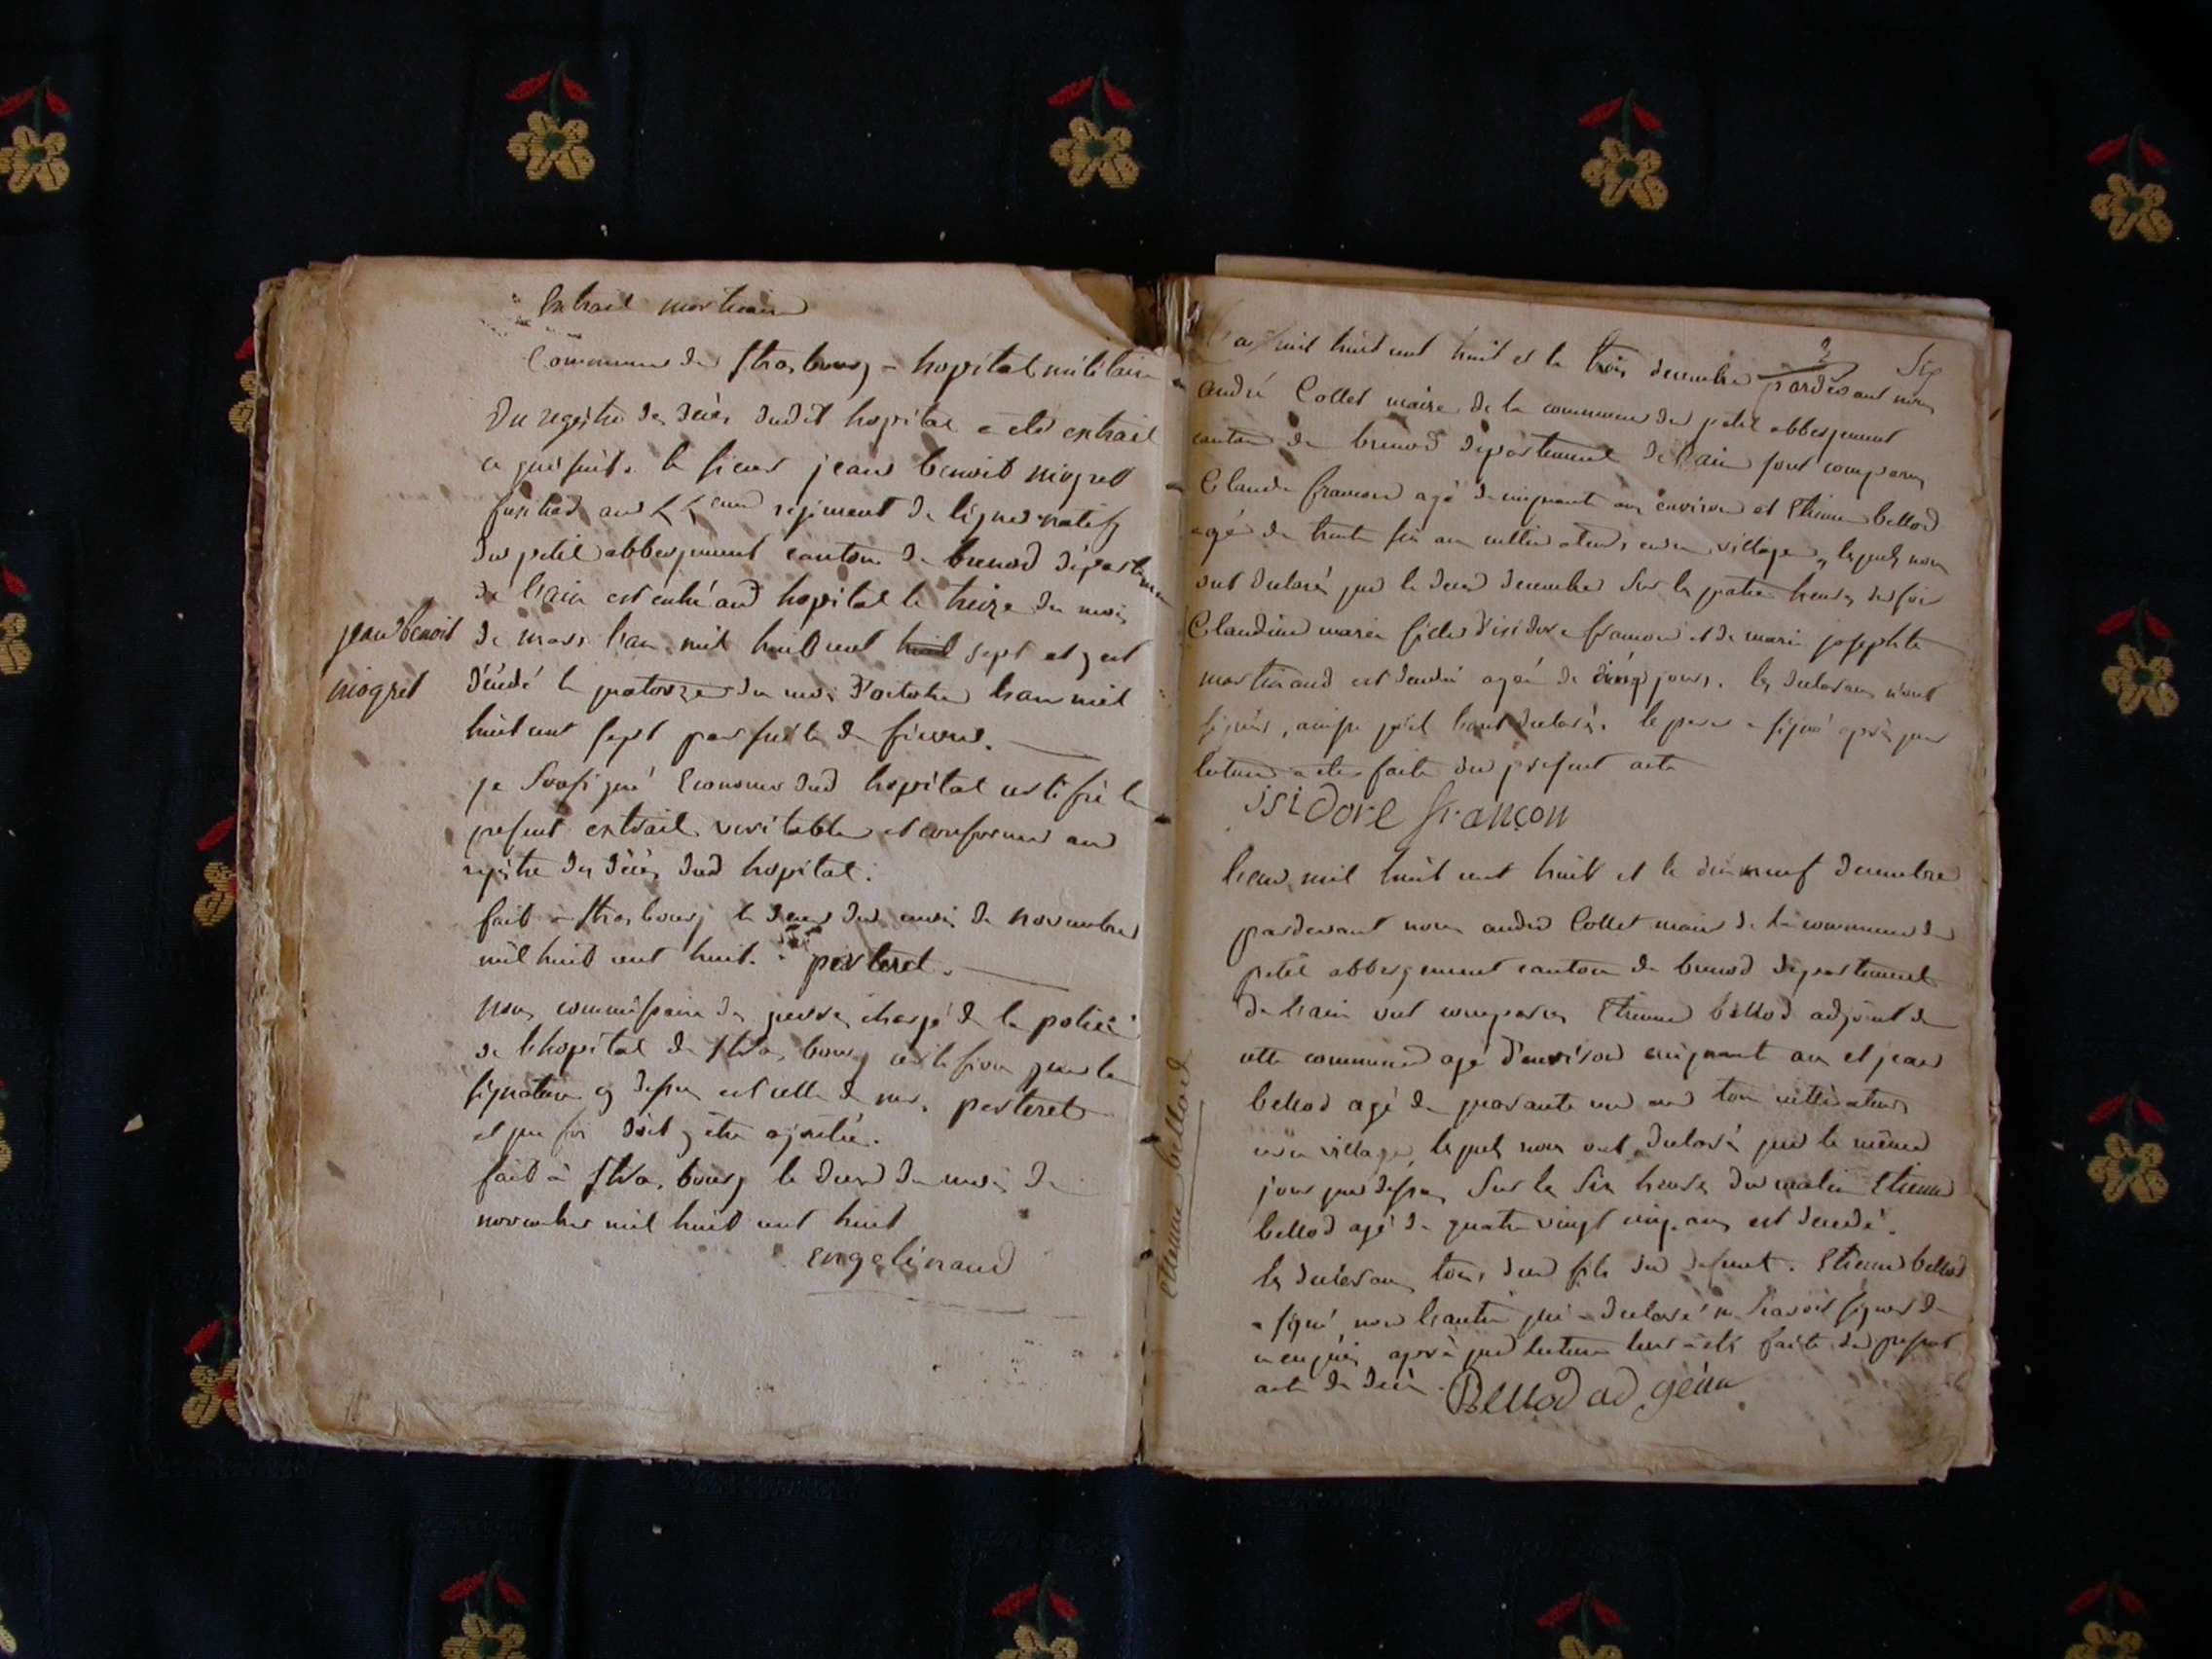 Extrait mortuaire
Commune de Strasbourg - hopital militaire
Du registre des décès dudit hopital a été extrait
ce qui suit. le sieur jean benoit niogret
fusilier au regiment de ligne natif
du petit abbergement canton de brenod département
de l'ain est entré aud hopital le treize du mois
jean benoit
niogret
de mars l'an mil huit cent huit sept et y est
décédé le quatorze du mois d'octobre l'an mil
huit cent sept par suite de fievre.
je soussigné Econome dud hopital certifié le
present extrait veritable et conforme au
registre des décès dud hopital.
fait a strasbourg le deux du mois de novembre
mil huit cent huit. perteret.
Nous commissaire des guerres chargé de la police
de l'hopital de strasbourg certifion que la
signature cy dessus est celle de mr. perteret
et que foi doit y être ajoutée.
fait à strasbourg le deux du mois de
novembre mil huit cent huit
engelinaud
Six
L'an mil huit cent huit et le trois decembre pardevant nous
andré Collet maire de la commune du petit abbergement
canton de brenod departement de l'ain sont comparus
Claude françon agé de cinquante ans environ et Etienne bellod
agé de trente six ans cultivateurs en ce village, lesquels nous
ont declaré que le deux decembre sur les quatre heures du soir
Claudine marie fille d'isidore françon et de marie josephte
martinand est décédée agée de cinq jours. les declarans n'ont
signés, ainsi qu'il l'ont declaré. le pere a signé après que
lecture a été faite du present acte
isidore françon
l'an mil huit cent huit et le dix neuf decembre
pardevant nous andré Collet maire de la commune du
petit abbergement canton de brenod departement
de l'ain ont comparus Etienne bellod adjoint de
cette commune agé d'environ cinquante ans et jean
bellod agé de quarante un ans tous cultivateurs
en ce village, lesquels nous ont declaré que le même
jour que dessus sur les six heures du matin Etienne
bellod agé de quatre vingt cinq ans est décédé.
les declarans tous deux fils du defunt. Etienne bellod
a signé non l'autre qui a declaré ne savoir signer de
ce enquis après que lecture leur a été faite du present
acte de décès. Bellod adgéin
etienne bellod